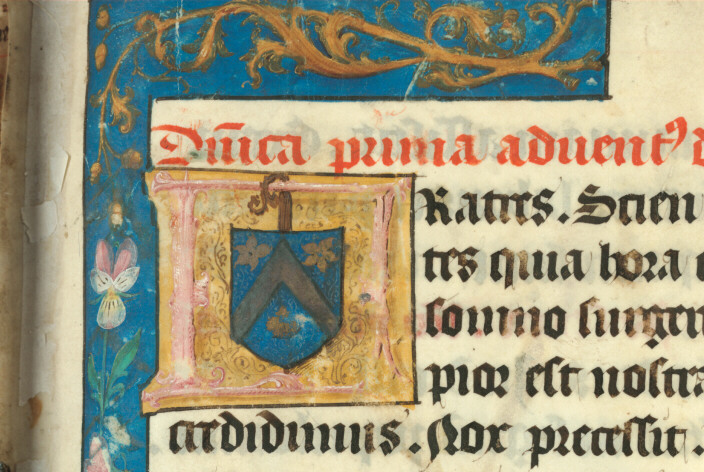 Dn̄ica prima aduentꝰ d
FRatres. Scien
tes quia hora e
somno surgen
pior est nostra
credidimus. Nox precessit.